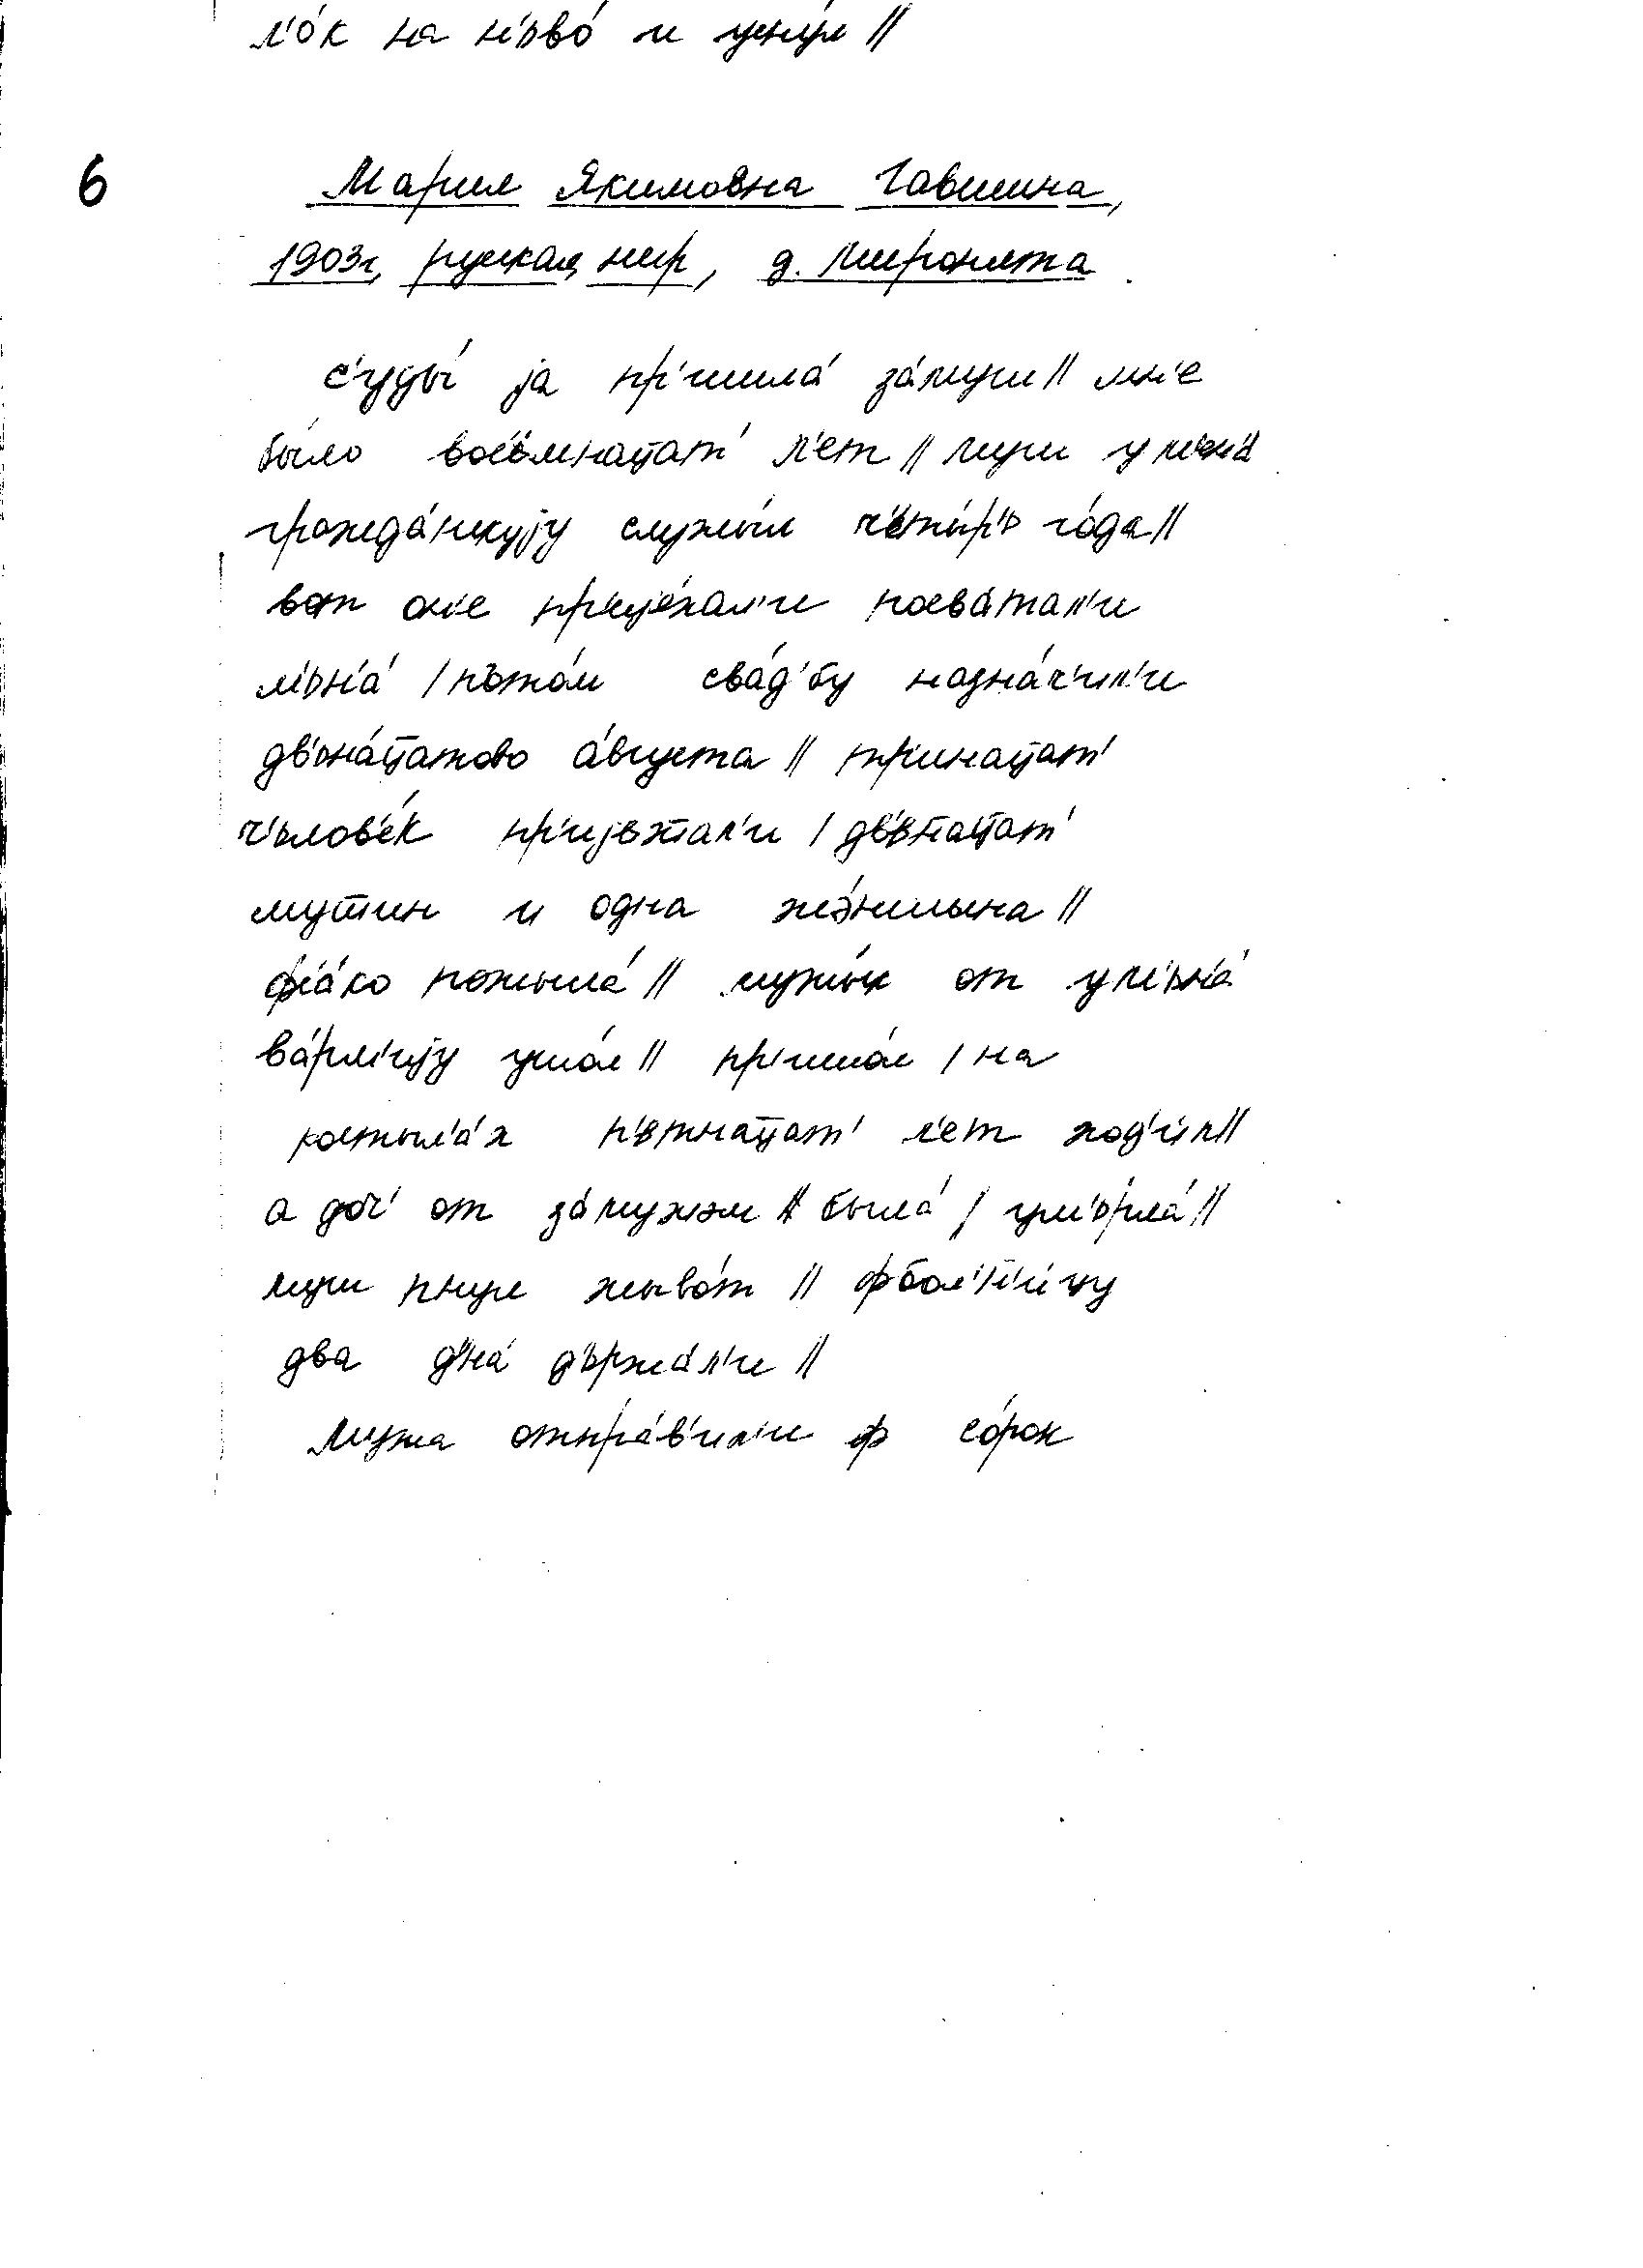 л'о́к на н'ьво́ и уснул //
6
Мария Якимовна Гавшина,
1903г, русская, нгр, д. Миронята.
с'уды́ ја пр'ишла́ за́муш // мн'е
бы́ло вос'ьмнац̄ат' л'ет // муш у м'ьн'а́
гражда́нскују служы́л ч'ьты́р'ь го́да //
вот он'е пр'ије́хал'и посва́тал'и
м'ьн'а́ / пъто́м сва́д'бу назна́ч'ил'и
дв'ьна́ц̄атово а́вгуста // тр'инац̄ат'
ч'ьлов'е́к пр'ијьж̄ал'и / дв'ьнац̄ат'
муш̄ин и одна же́ншына //
фс'а́ко пожыла́ // мужы́к от у м'ьн'а́
ва́рм'ију ушо́л // пр'ишо́л / на
костыл'а́х п'ьтнац̄ат' л'ет ход'и́л //
а доч' от за́мужэм была́ / ум'ьрла́ //
муш пнул жыво́т // фбол'н'и́цу
два д'н'а́ д'ьржа́л'и //
мужа отпра́в'ил'и ф со́рок